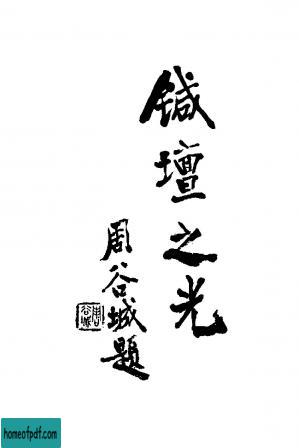 鍼壇之光
周谷城題
周谷城
homeofpdf.com